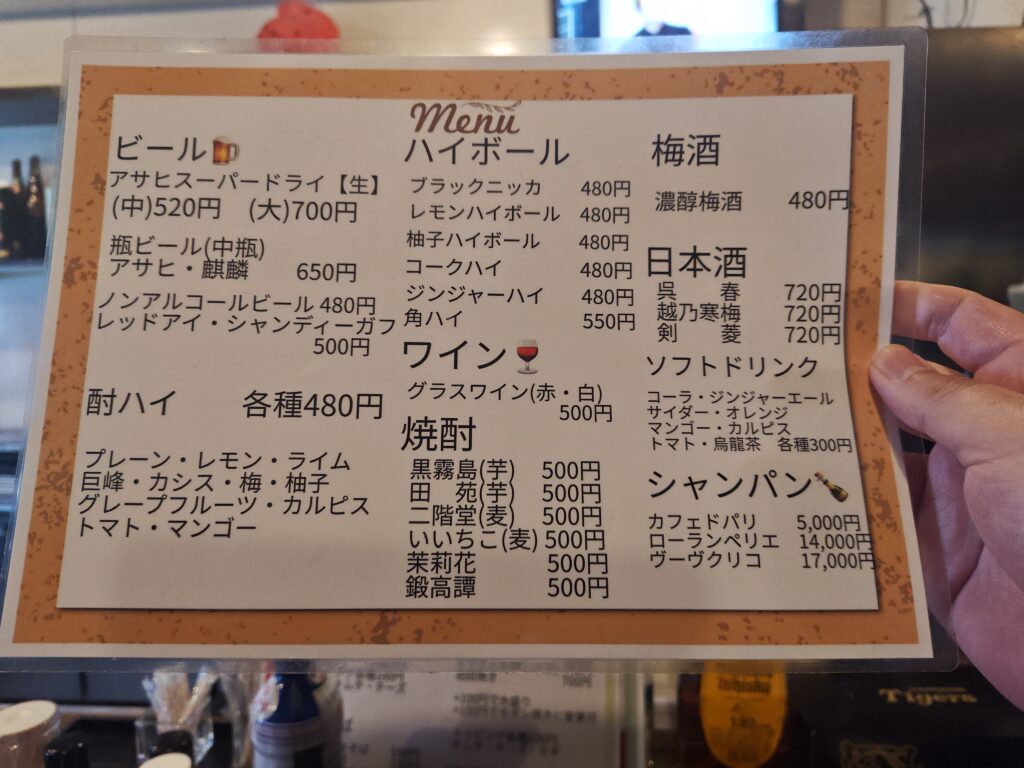 Menu
ビール
アサヒスーパードライ【生】
(中)520円 (大)700円
瓶ビール(中瓶)
アサヒ・麒麟 650円
ノンアルコールビール 480円
レッドアイ・シャンディーガフ
500円
酎ハイ 各種480円
プレーン・レモン・ライム
巨峰・カシス・梅・柚子
グレープフルーツ・カルピス
トマト・マンゴー
ハイボール
ブラックニッカ 480円
レモンハイボール 480円
柚子ハイボール 480円
コークハイ 480円
ジンジャーハイ 480円
角ハイ 550円
ワイン
グラスワイン(赤・白)
500円
焼酎
黒霧島(芋) 500円
田 苑(芋) 500円
二階堂(麦) 500円
いいちこ(麦) 500円
茉莉花 500円
鍛高譚 500円
梅酒
濃醇梅酒 480円
日本酒
呉 春 720円
越乃寒梅 720円
剣 菱 720円
ソフトドリンク
コーラ・ジンジャーエール
サイダー・オレンジ
マンゴー・カルピス
トマト・烏龍茶 各種300円
シャンパン
カフェドパリ 5,000円
ローランペリエ 14,000円
ヴーヴクリコ 17,000円
Whisky
192